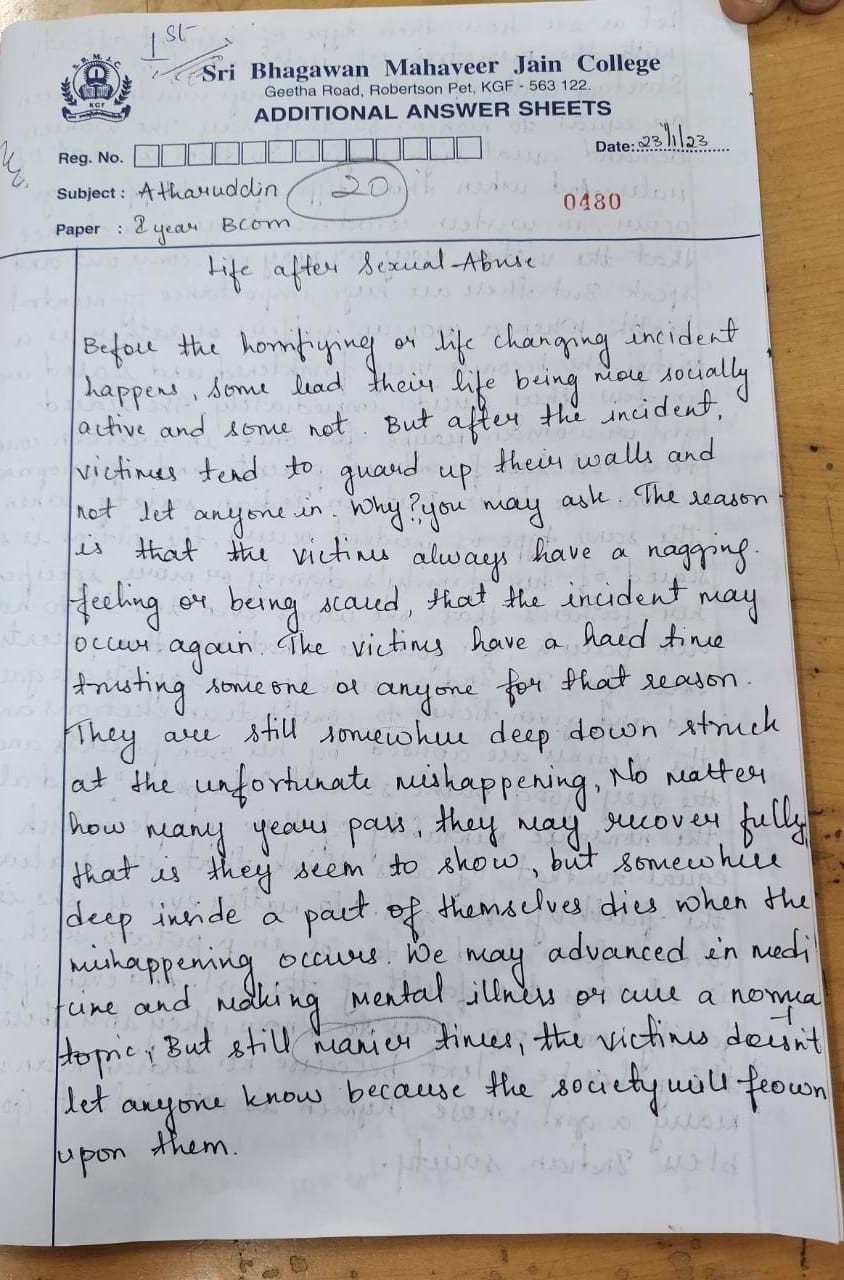 1st
S.B.M.J.C
KGF
Sri Bhagawan Mahaveer Jain College
Geetha Road, Robertson Pet, KGF - 563 122.
ADDITIONAL ANSWER SHEETS
Reg. No.
Date: 23/1/23
Subject : Atharuddin
20
0480
Paper : 2 year Bcom
Life after Sexual-Abuse
Before the horrifying or life changing incident
happens, some lead their life being more socially
active and some not. But after the incident,
victims tend to guard up their walls and
not let anyone in. Why? you may ask. The reason
is that the victims always have a nagging
feeling or being scared, that the incident may
occur again. The victims have a hard time
trusting someone or anyone for that reason.
They are still somewhere deep down struck
at the unfortunate mishappening, No matter
how many years pass, they may recover fully
that is they seem to show, but somewhere
deep inside a part of themselves dies when the
mishappening occurs. We may advanced in medi
cine and making mental illness or cure a norma
l
topic, But still manier times, the victims doesn't
let anyone know because the society will frown
upon them.